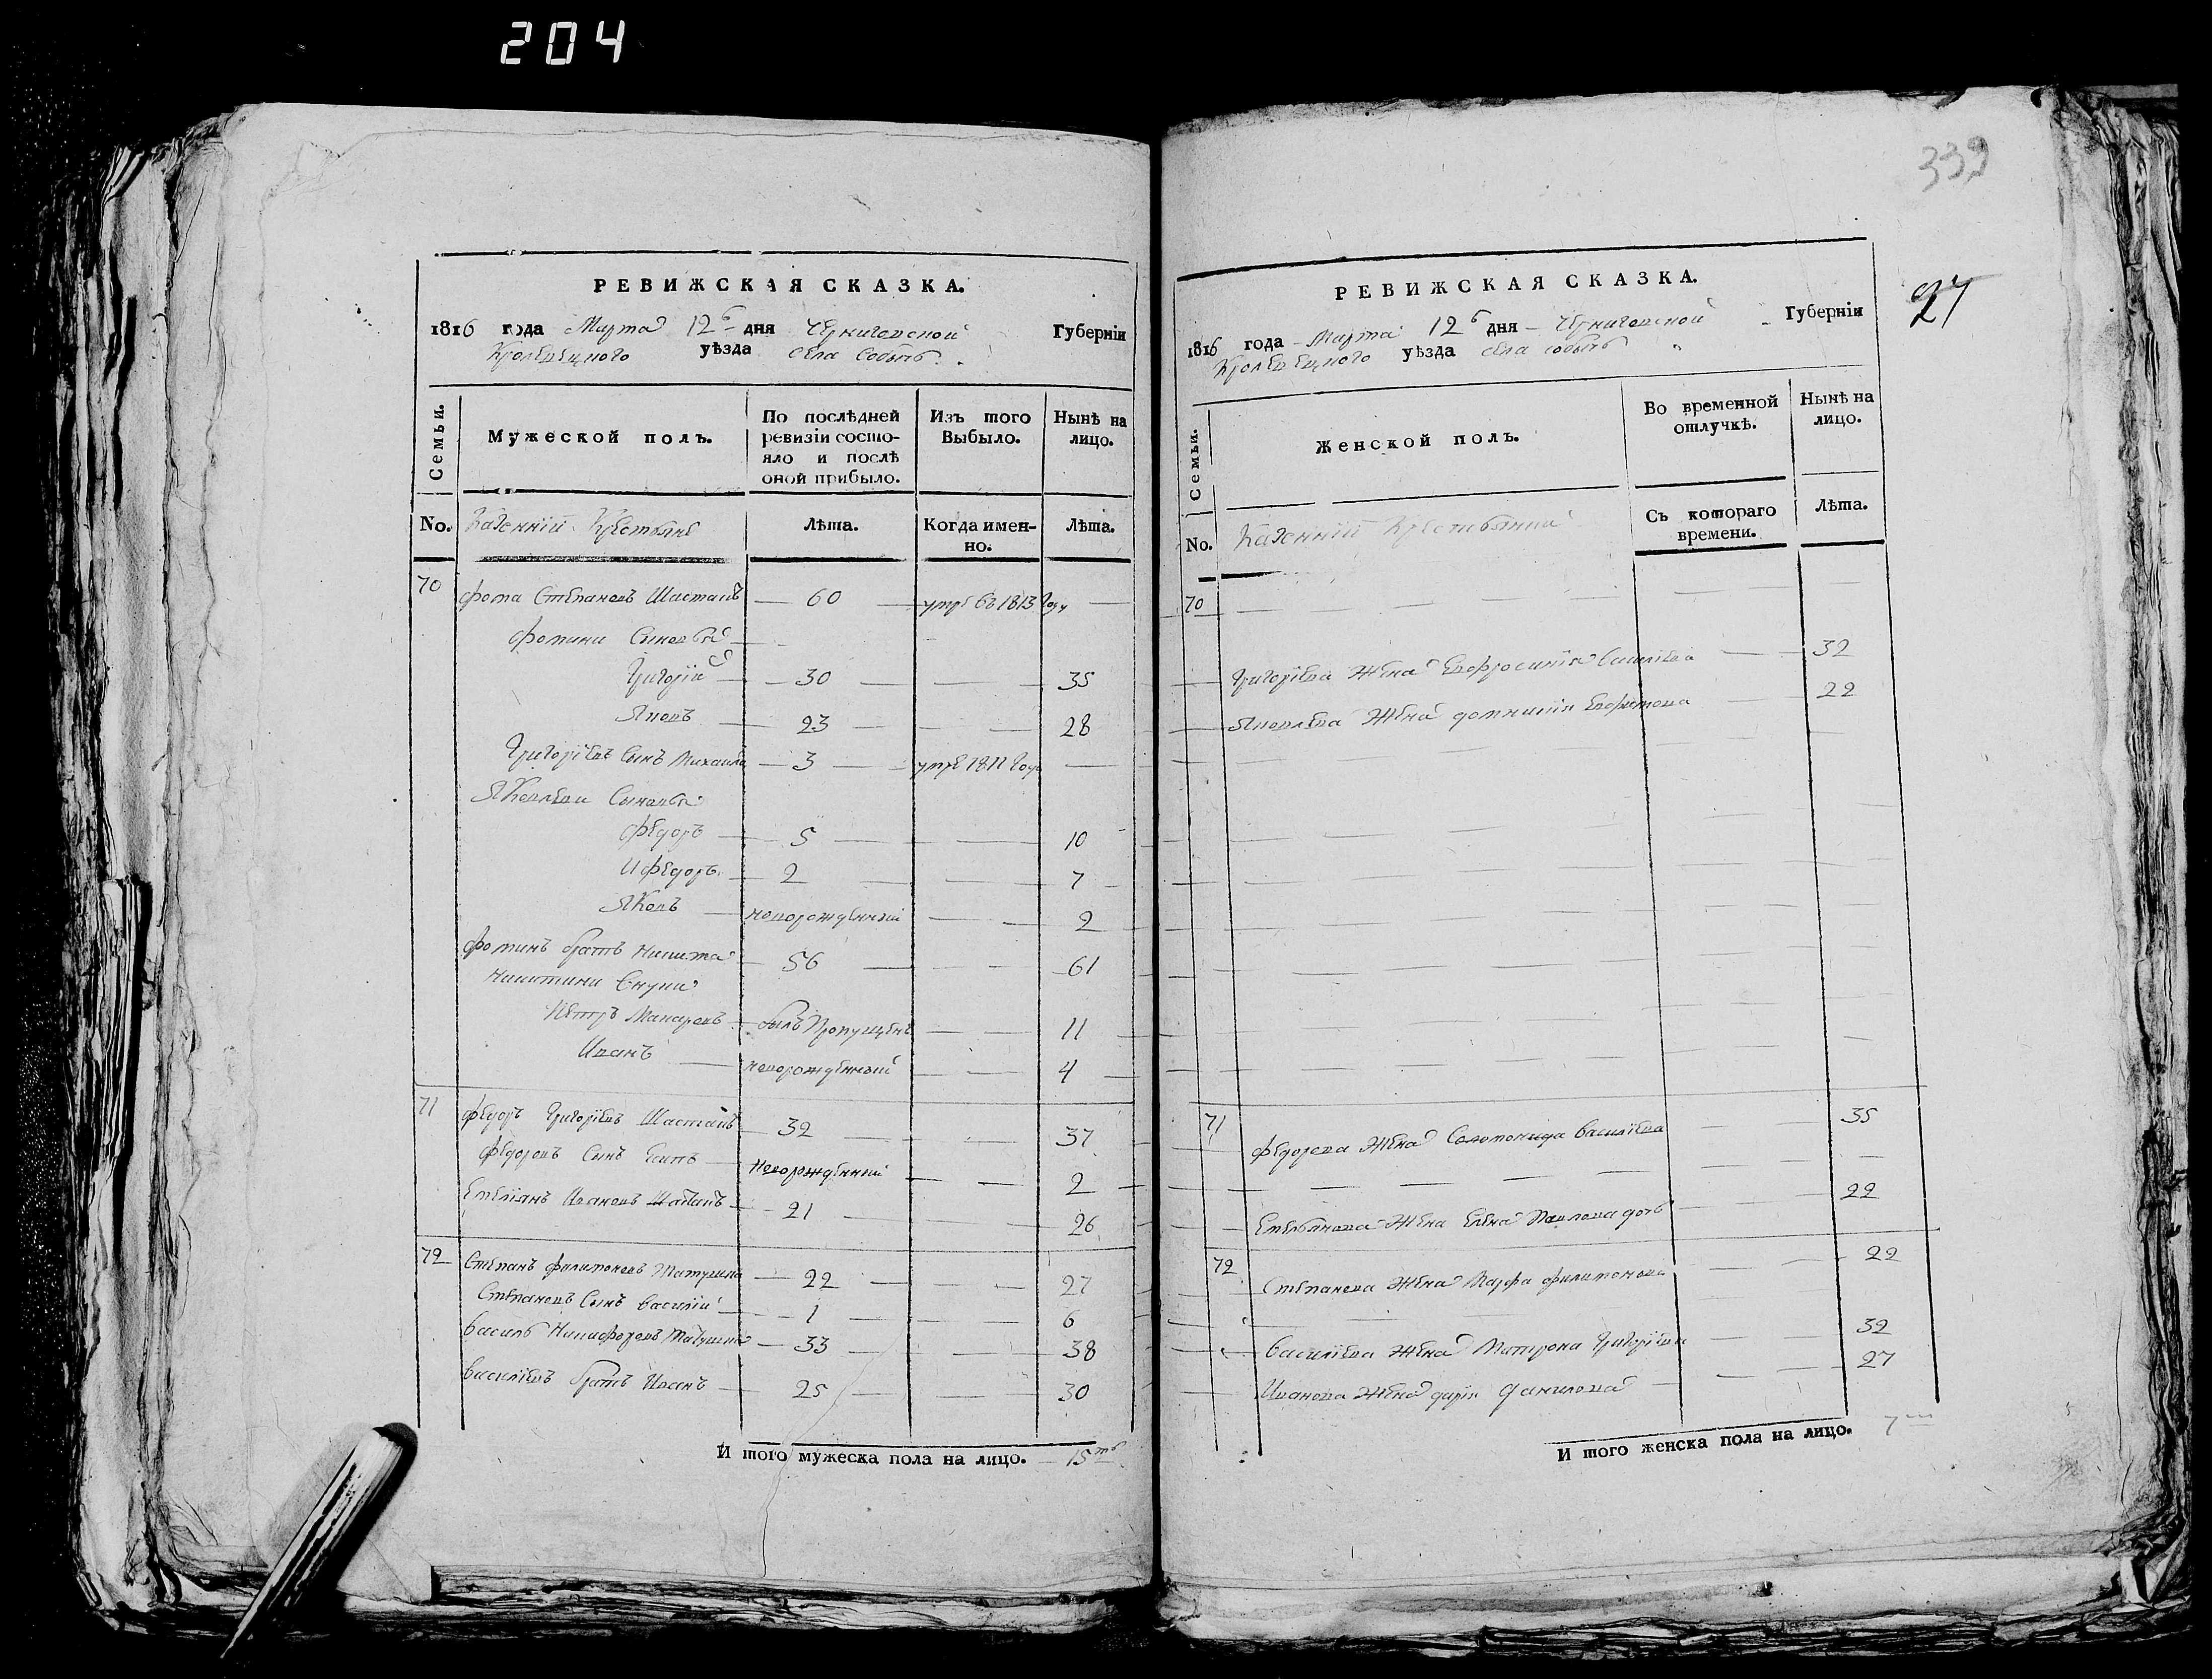 204
339
27
РЕВИЖСКАЯ СКАЗКА.
1816 года Марта 12 дня Черниговской Губерніи
Кролевецкого уѣзда села Собычь
Семьи.
Мужеской полъ.
По послѣдней ревизіи состояло и послѣ оной прибыло.
Изъ того Выбыло.
Нынѣ на лицо.
No. Казенніи Крестьяне
Лѣта.
Когда именно.
Лѣта.
70 Фома Степановъ 60 умре въ 1813 году
Фомини Сыновья
Григорій 30 35
Яковъ 23 28
Григоріевъ Сынъ Михаила 3 умре 1811 году
Яковлеви Сыновья
Федоръ 5 10
И Федоръ 2 7
Яковъ новорожденный 2
Фоминъ братъ Никита 56 61
Никитини Внуки
Петръ Макаровъ былъ Пропущенъ 11
Иванъ новорожденный 4
71 Федоръ Григоріевъ 32 37
Федоровъ Сынъ новорожденный 2
Емеліянъ Ивановъ 21 26
72 Степанъ Филимоновъ 22 27
Степановъ Сынъ Василій 1 6
Василь Никифоровъ 33 38
Василіевъ братъ Иванъ 25 30
И того мужеска пола на лицо. 15ть
РЕВИЖСКАЯ СКАЗКА.
1816 года Марта 12 дня Черниговской Губерніи
Кролевецкого уѣзда села Собычь
Семьи.
Женской полъ.
Во временной отлучкѣ.
Нынѣ на лицо.
No. Казенніи
Съ котораго времени.
Лѣта.
70
Григоріева Жена Евфросинія Василіева 32
Яковлева Жена Домникія Евфимова 22
71 Федорова Жена Соломонида Василіева 35
Емельянова Жена Елена Павлова дочь 22
72 Степанова Жена Марфа Филимонова 22
Василіева Жена Матрона Григоріева 32
Иванова Жена Дарія Данилова 27
И того женска пола на лицо. 7